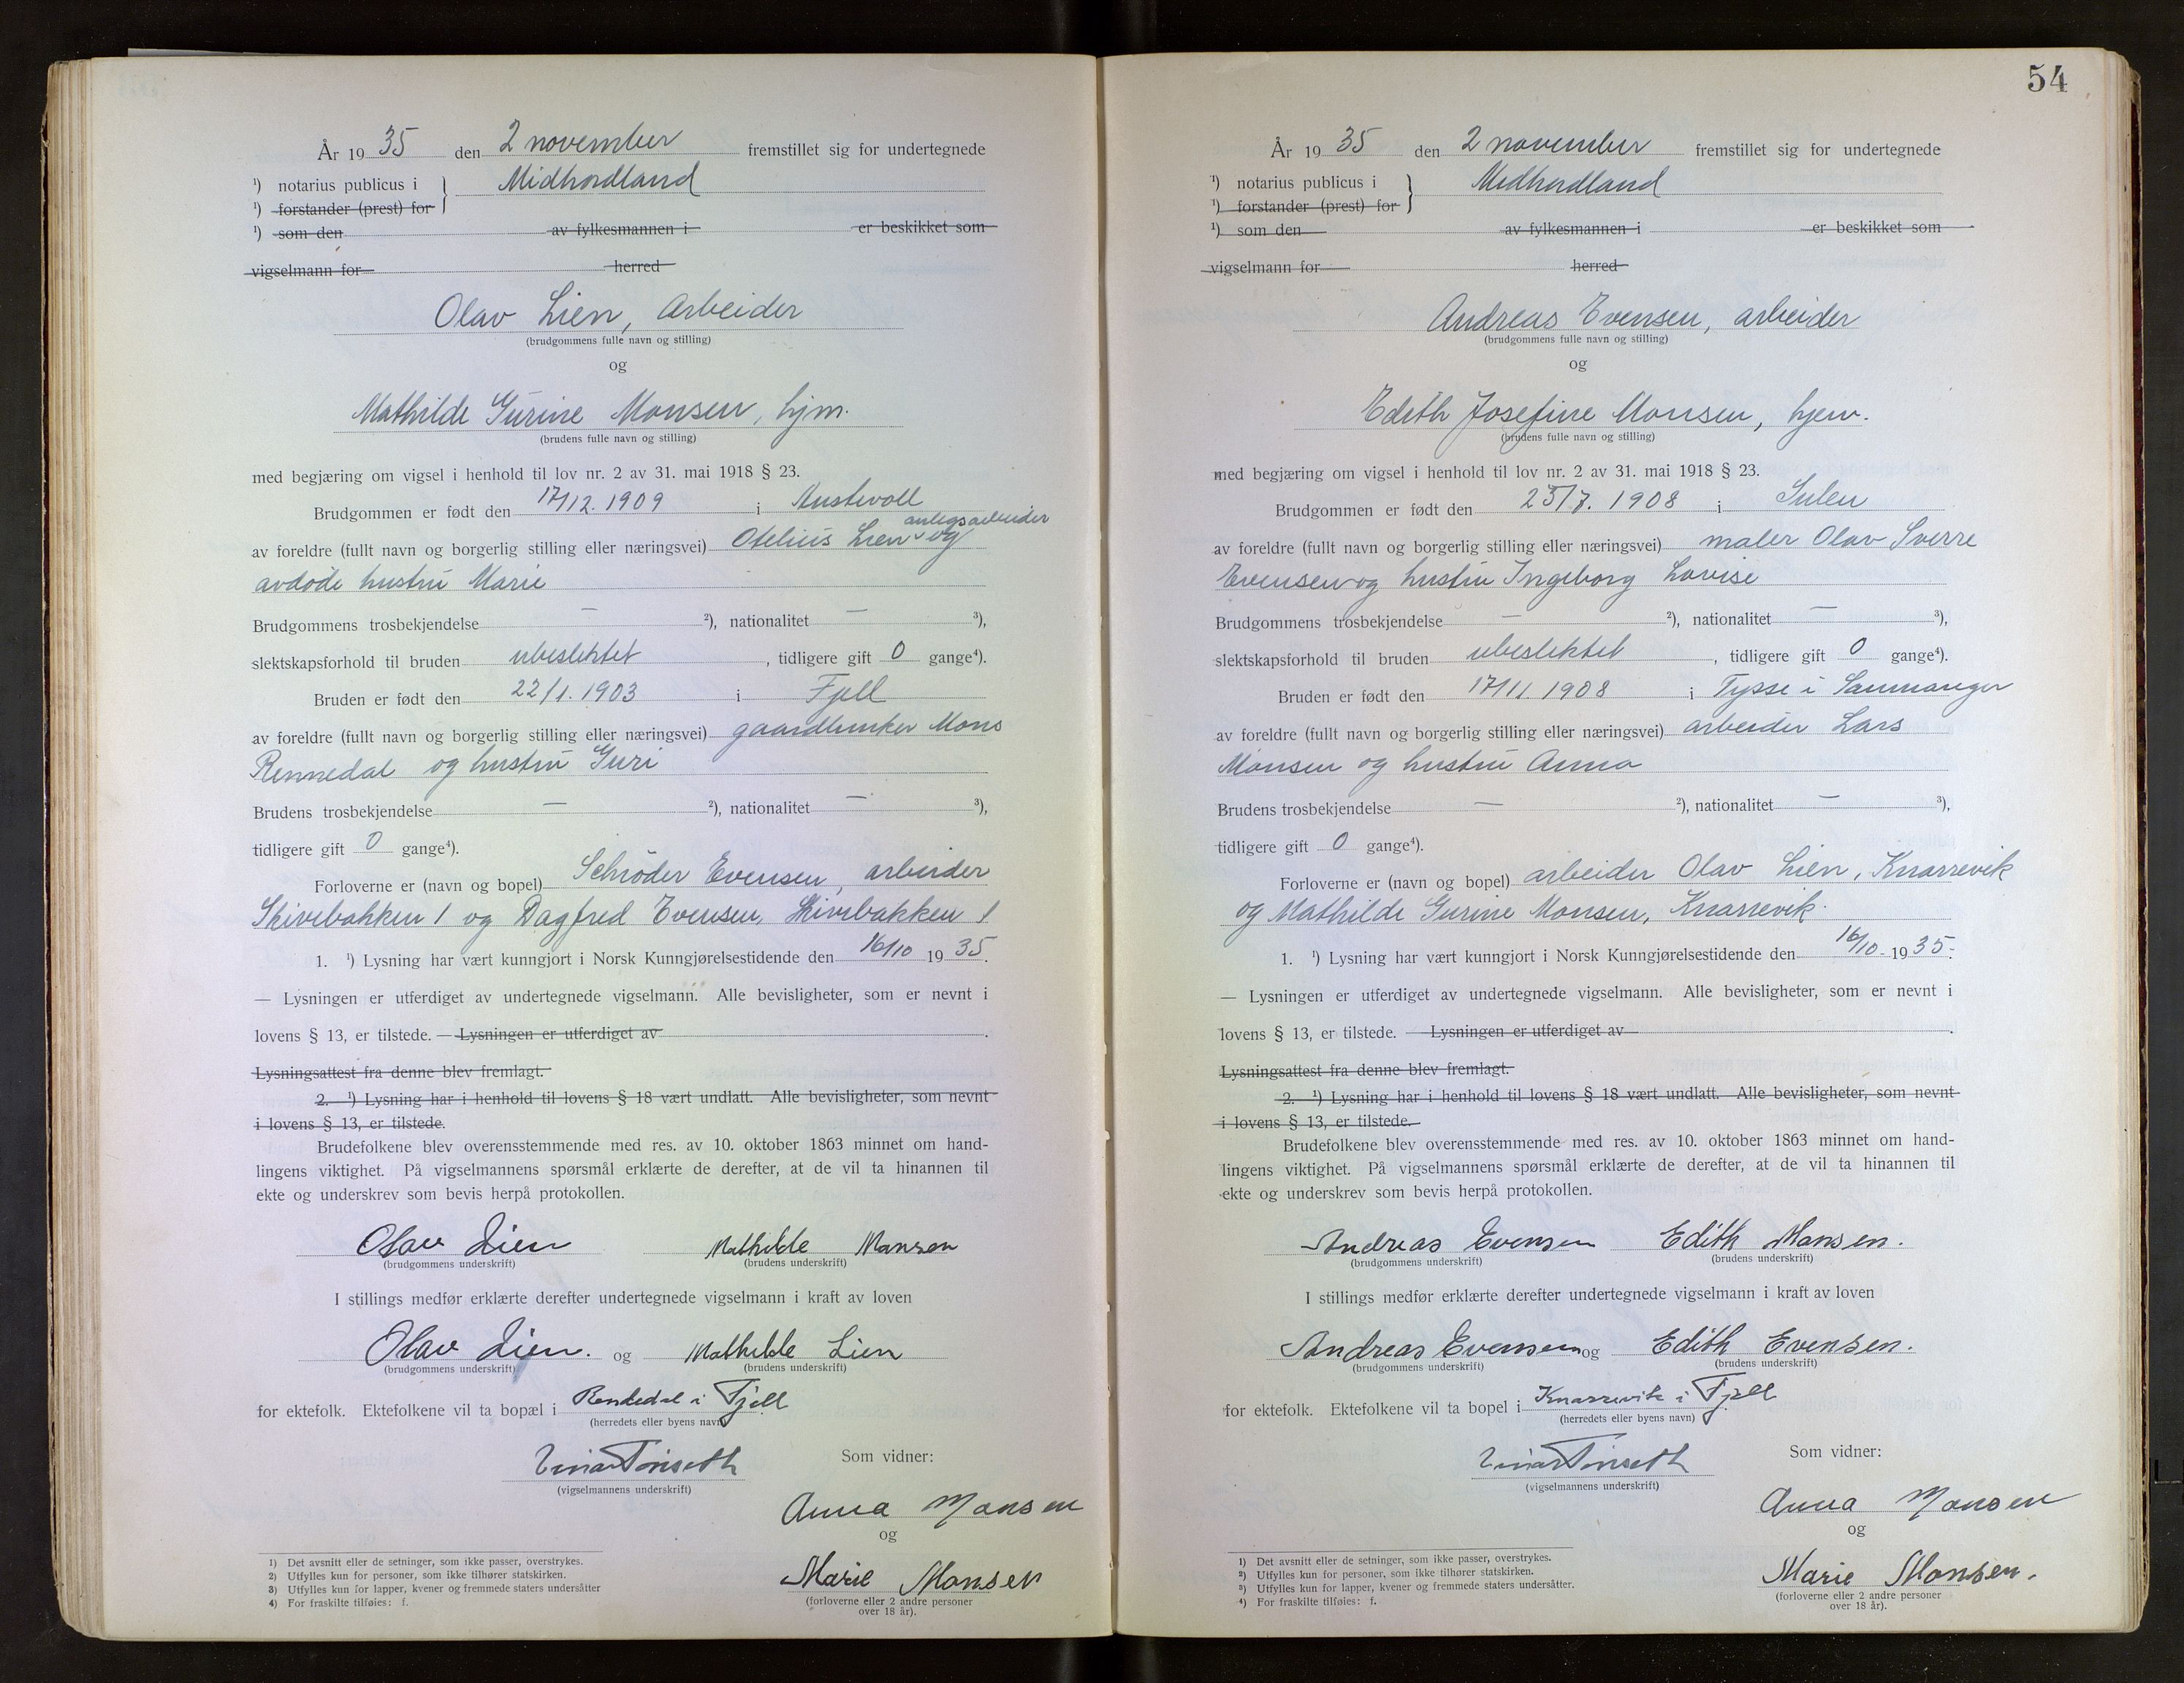 År 1935 den 2 november fremstillet sig for undertegnede
¹) notarius publicus i } Midhordland
¹) forstander (prest) for
¹) som den av fylkesmannen i er beskikket som
vigselmann for herred
Olav Lien, arbeider
(brudgommens fulle navn og stilling)
og
Mathilde Gurine Monsen, hjm.
(brudens fulle navn og stilling)
med begjæring om vigsel i henhold til lov nr. 2 av 31. mai 1918 § 23.
Brudgommen er født den 17/12. 1909 i Austevoll
anlegsarbeider
av foreldre (fullt navn og borgerlig stilling eller næringsvei) Otelius Lien og
avdøde hustru Marie
Brudgommens trosbekjendelse — ²), nationalitet — ³),
slektskapsforhold til bruden ubeslektet, tidligere gift 0 gange⁴).
Bruden er født den 22/1. 1903 i Fjell
av foreldre (fullt navn og borgerlig stilling eller næringsvei) gaardbruker Mons
Rennedal og hustru Guri
Brudens trosbekjendelse — ²), nationalitet — ³),
tidligere gift 0 gange⁴).
Forloverne er (navn og bopel) Schrøder Evensen, arbeider
Skivebakken 1 og Dagfred Evensen, Skivebakken 1
1. ¹) Lysning har vært kunngjort i Norsk Kunngjørelsestidende den 16/10 1935.
— Lysningen er utferdiget av undertegnede vigselmann. Alle bevisligheter, som er nevnt i
lovens § 13, er tilstede. — Lysningen er utferdiget av .
Lysningsattest fra denne blev fremlagt.
2. ¹) Lysning har i henhold til lovens § 18 vært undlatt. Alle bevisligheter, som nevnt
i lovens § 13, er tilstede.
Brudefolkene blev overensstemmende med res. av 10. oktober 1863 minnet om hand-
lingens viktighet. På vigselmannens spørsmål erklærte de derefter, at de vil ta hinannen til
ekte og underskrev som bevis herpå protokollen.
Olav Lien Mathilde Monsen
(brudgommens underskrift) (brudens underskrift)
I stillings medfør erklærte derefter undertegnede vigselmann i kraft av loven
Olav Lien. og Mathilde Lien
(brudgommens underskrift) (brudens underskrift)
for ektefolk. Ektefolkene vil ta bopæl i Rendedal i Fjell
(herredets eller byens navn)
Einar Tønseth
(vigselmannens underskrift)
Som vidner:
Anna Monsen
og
Marie Monsen
(forloverne eller 2 andre personer
over 18 år).
1) Det avsnitt eller de setninger, som ikke passer, overstrykes.
2) Utfylles kun for personer, som ikke tilhører statskirken.
3) Utfylles kun for lapper, kvener og fremmede staters undersåtter
4) For fraskilte tilføies: f.
54
År 1935 den 2 november fremstillet sig for undertegnede
¹) notarius publicus i } Midhordland
¹) forstander (prest) for
¹) som den av fylkesmannen i er beskikket som
vigselmann for herred
Andreas Evensen, arbeider
(brudgommens fulle navn og stilling)
og
Edith Josefine Monsen, hjem.
(brudens fulle navn og stilling)
med begjæring om vigsel i henhold til lov nr. 2 av 31. mai 1918 § 23.
Brudgommen er født den 25/7. 1908 i Sulen
av foreldre (fullt navn og borgerlig stilling eller næringsvei) maler Olav Sverre
Evensen og hustru Ingeborg Lovise
Brudgommens trosbekjendelse — ²), nationalitet — ³),
slektskapsforhold til bruden ubeslektet, tidligere gift 0 gange⁴).
Bruden er født den 17/11. 1908 i Tysse i Samnanger
av foreldre (fullt navn og borgerlig stilling eller næringsvei) arbeider Lars
Monsen og hustru Anna
Brudens trosbekjendelse — ²), nationalitet — ³),
tidligere gift 0 gange⁴).
Forloverne er (navn og bopel) arbeider Olav Lien, Knarrevik
og Mathilde Gurine Monsen, Knarrevik.
1. ¹) Lysning har vært kunngjort i Norsk Kunngjørelsestidende den 16/10. 1935.
— Lysningen er utferdiget av undertegnede vigselmann. Alle bevisligheter, som er nevnt i
lovens § 13, er tilstede. — Lysningen er utferdiget av .
Lysningsattest fra denne blev fremlagt.
2. ¹) Lysning har i henhold til lovens § 18 vært undlatt. Alle bevisligheter, som nevnt
i lovens § 13, er tilstede.
Brudefolkene blev overensstemmende med res. av 10. oktober 1863 minnet om hand-
lingens viktighet. På vigselmannens spørsmål erklærte de derefter, at de vil ta hinannen til
ekte og underskrev som bevis herpå protokollen.
Andreas Evensen Edith Monsen.
(brudgommens underskrift) (brudens underskrift)
I stillings medfør erklærte derefter undertegnede vigselmann i kraft av loven
Andreas Evensen og Edith Evensen.
(brudgommens underskrift) (brudens underskrift)
for ektefolk. Ektefolkene vil ta bopel i Knarrevik i Fjell
(herredets eller byens navn)
Einar Tønseth
(vigselmannens underskrift)
Som vidner:
Anna Monsen
og
Marie Monsen.
(forloverne eller 2 andre personer
over 18 år).
1) Det avsnitt eller de setninger, som ikke passer, overstrykes.
2) Utfylles kun for personer, som ikke tilhører statskirken.
3) Utfylles kun for lapper, kvener og fremmede staters undersåtter.
4) For fraskilte tilføies: f.